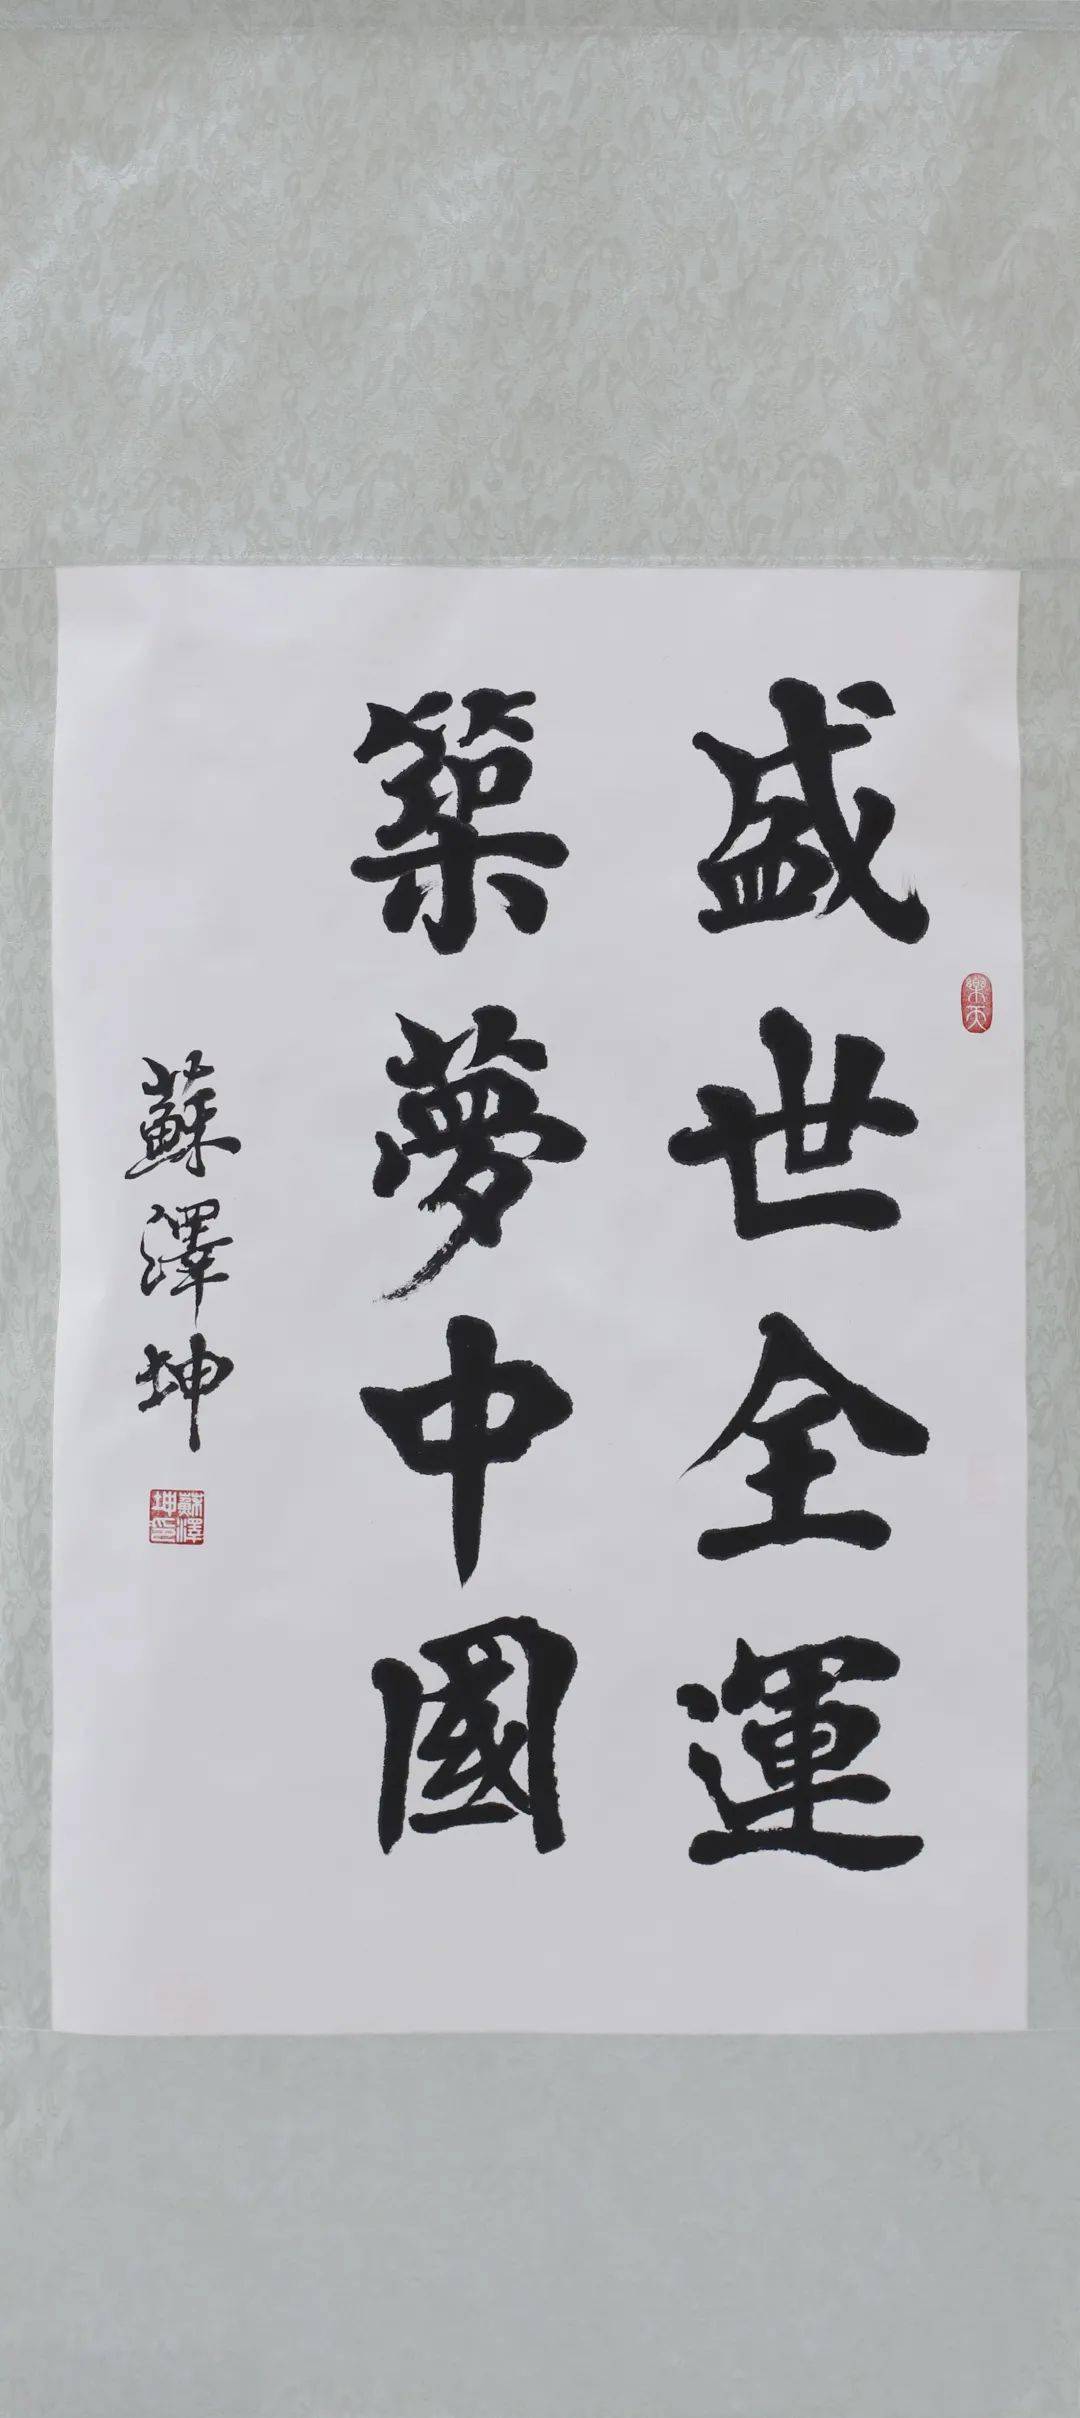 盛世全運
築夢中國
蘇澤坤
樂天
蘇澤坤印